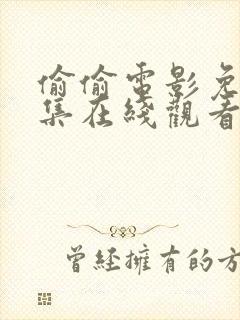 偷偷電影免
集在綫觀看
曾經擁有的方